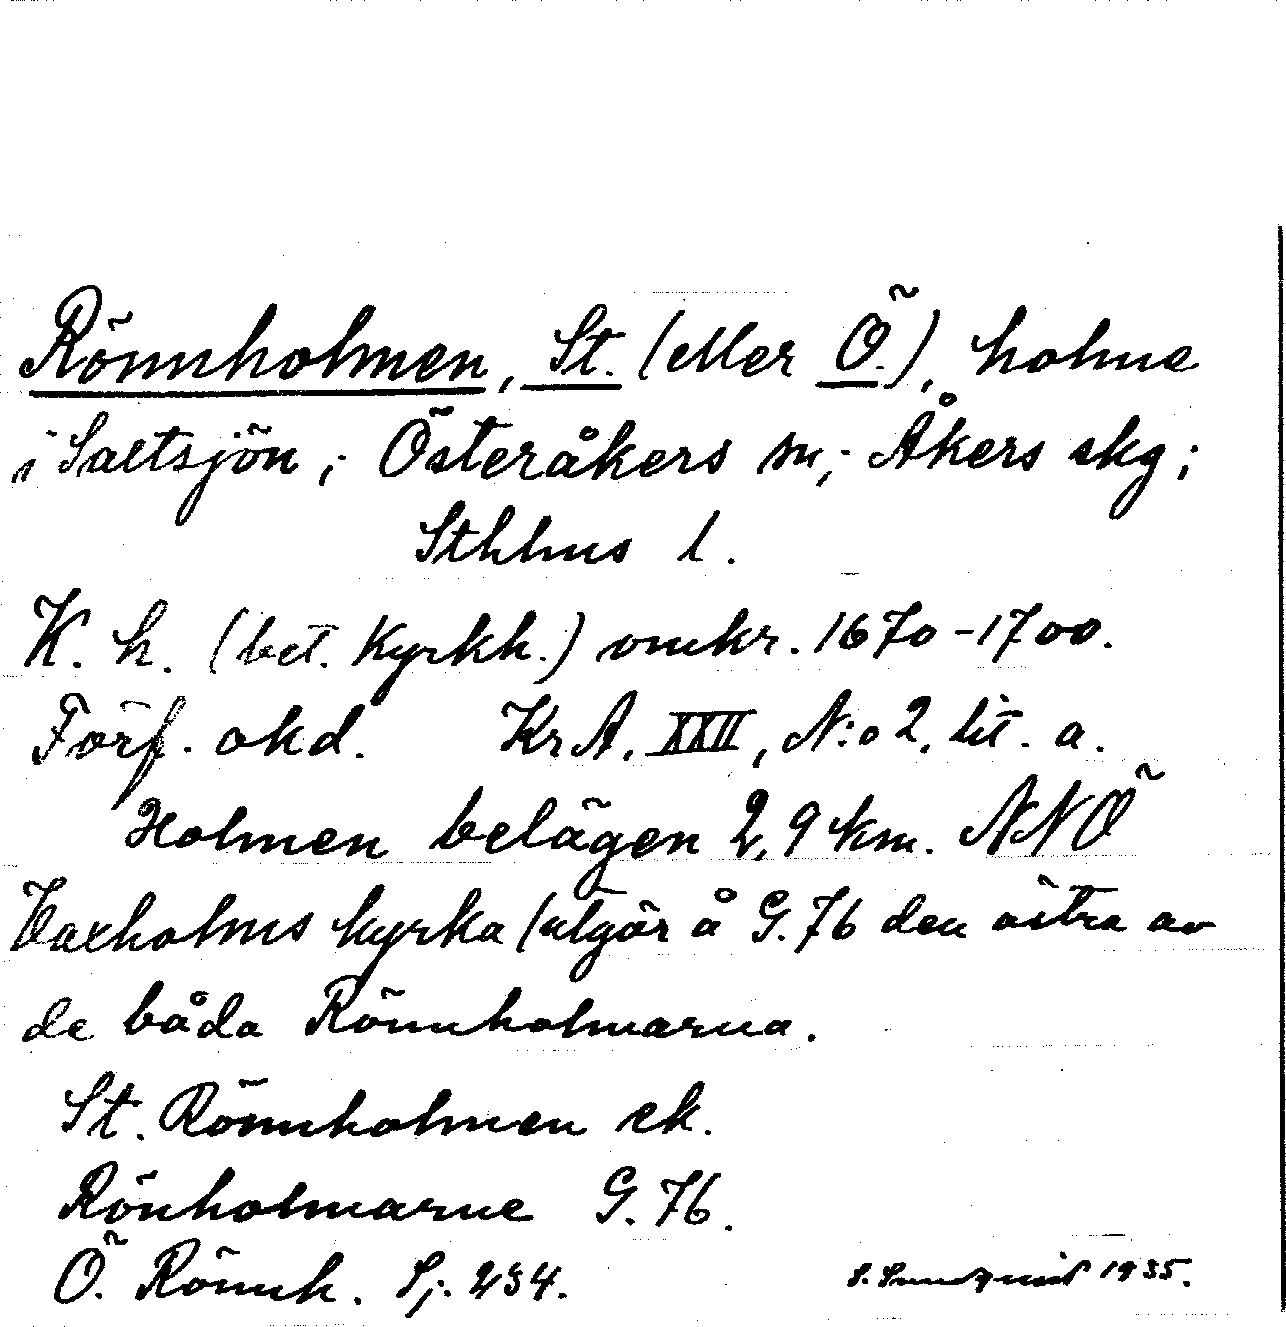 Rönnholmen, St. (eller Ö.), holme
i Saltsjön; Österåkers sn; Åkers skg;
Sthlms l.
K. h. (bet. Kyrkh.) omkr. 1670-1700.
Förf. okd. KrA. XXII, N:o 2, lit. a.
Holmen belägen 2,9 km. NNÖ
Vaxholms kyrka (utgör å G. 76 den östra av
de båda Rönnholmarna.
St. Rönnholmen ek.
Rönholmarne G. 76.
Ö. Rönnh. Sj. 234.
S. Sundquist 1935.